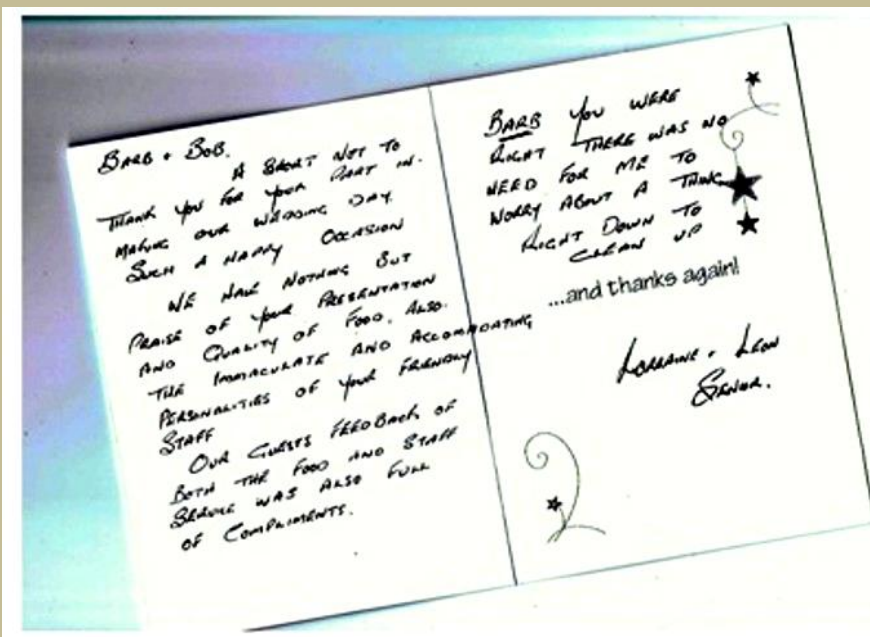 BARB + BOB.
A SHORT NOT TO
THANK YOU FOR YOUR PART IN.
MAKING OUR WEDDING DAY
SUCH A HAPPY OCCASION
WE HAVE NOTHING BUT
PRAISE OF YOUR PRESENTATION
AND QUALITY OF FOOD. ALSO.
THE IMMACULATE AND ACCOMODATING
PERSONALITIES OF YOUR FRIENDLY
STAFF
OUR GUESTS FEEDBACK OF
BOTH THE FOOD AND STAFF
SERVICE WAS ALSO FULL
OF COMPLIMENTS.
BARB YOU WERE
RIGHT THERE WAS NO
NEED FOR ME TO
WORRY ABOUT A THING
RIGHT DOWN TO
CLEAN UP
...and thanks again!
LORRAINE + LEON